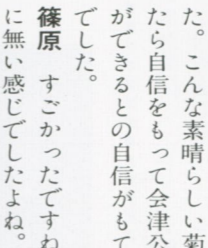 た。こんな素晴らしい菊
たら自信をもって会津公
ができるとの自信がもて
でした。
篠原 すごかったですね
に無い感じでしたよね。